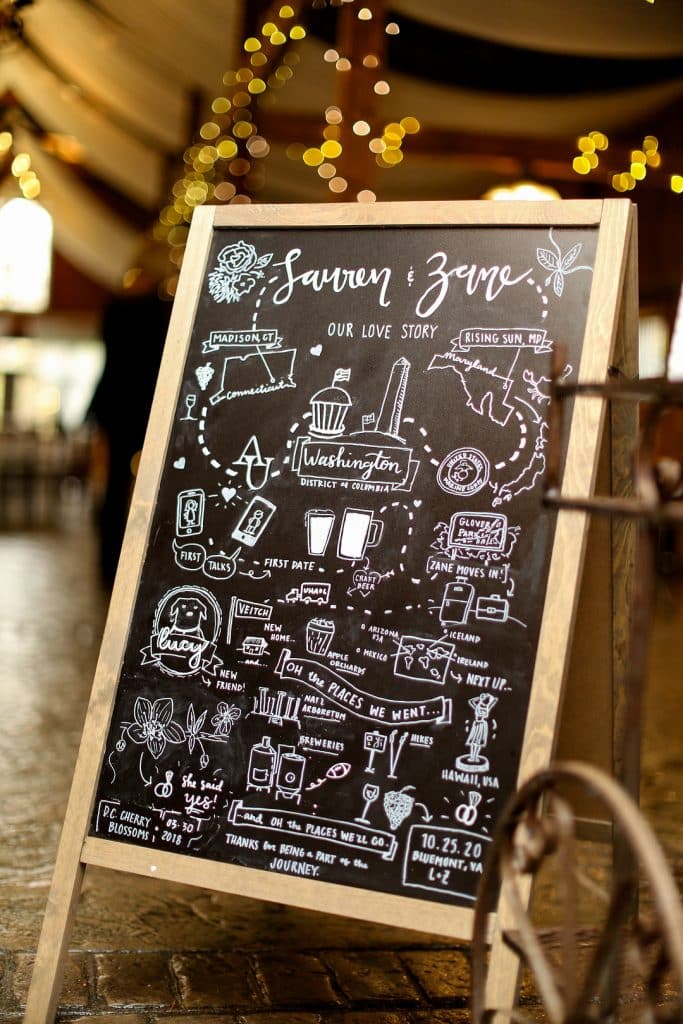 Lauren & Zane
OUR LOVE STORY
MADISON, CT
RISING SUN, MD
Connecticut
Maryland
Washington
DISTRICT OF COLUMBIA
AU
UNITED STATES
MARINE CORPS
FIRST TALKS
FIRST DATE
CRAFT
BEER
GLOVER
PARK
ZANE MOVES IN!
UHAUL
lucy
NEW
FRIEND!
VEITCH
NEW
HOME..
and...
APPLE
ORCHARDS
ARIZONA
USA
MEXICO
ICELAND
IRELAND
NEXT UP...
OH the PLACES WE WENT...
NAT'L
ARBORETUM
BREWERIES
HIKES
HAWAII, USA
She said
yes!
D.C. CHERRY
BLOSSOMS
03.30
2018
and OH the PLACES WE'LL GO
THANKS for BEING A PART of the
JOURNEY.
10.25.20
BLUEMONT, VA
L+Z